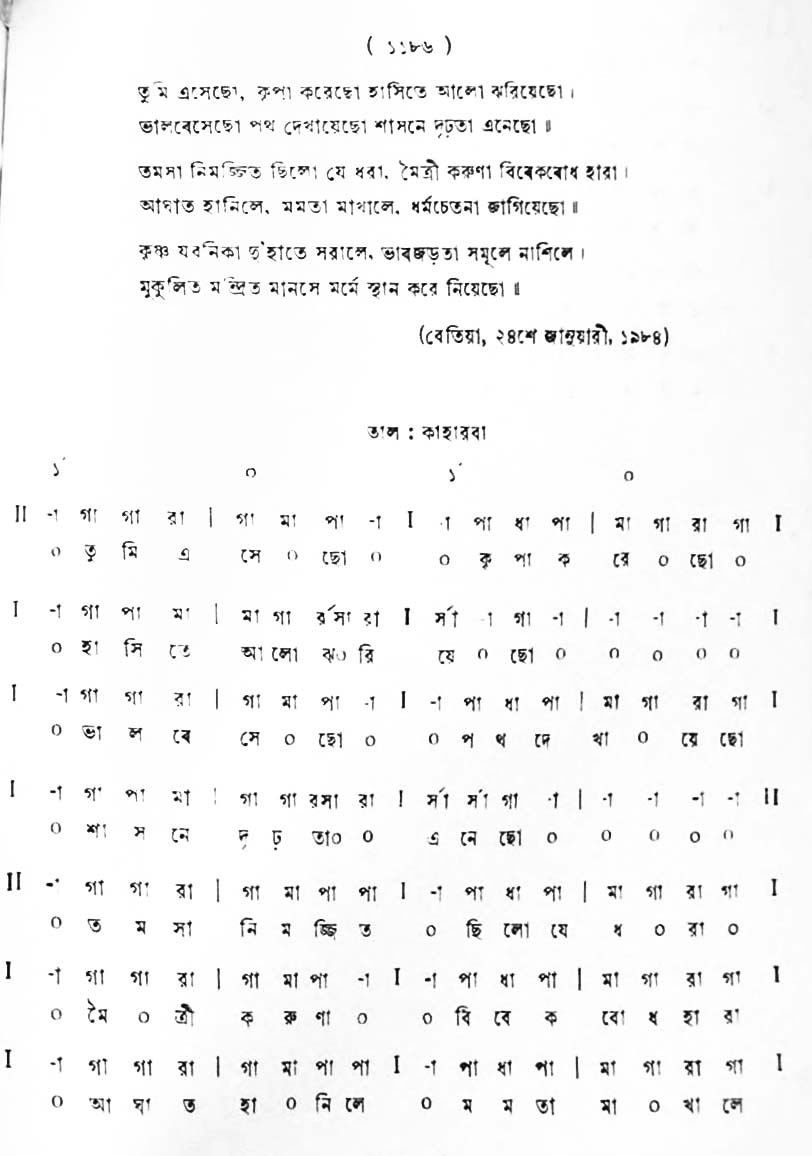 ( ১১৮৬ )
তুমি এসেছো, কৃপা করেছো হাসিতে আলো ঝরিয়েছো।
ভালবেসেছো পথ দেখায়েছো শাসনে দৃঢ়তা এনেছো॥
তমসা নিমজ্জিত ছিলো যে ধরা, মৈত্রী করুণা বিবেকবোধ হারা।
আঘাত হানিলে, মমতা মাখালে, ধর্মচেতনা জাগিয়েছো॥
কৃষ্ণ যবনিকা দু'হাতে সরালে, ভাবজড়তা সমূলে নাশিলে।
মুকুলিত মন্দ্রিত মানসে মর্মে স্থান করে নিয়েছো॥
(বেতিয়া, ২৪শে জানুয়ারী, ১৯৮৪)
তাল : কাহারবা
১´ ০ ১´ ০
II -া গা গা রা | গা মা পা -া I -া পা ধা পা | মা গা রা গা I
০ তু মি এ সে ০ ছো ০ ০ কৃ পা ক রে ০ ছো ০
I -া গা পা মা | মা গা র্সা রা I র্সা -া গা -া | -া -া -া -া I
০ হা সি তে আ লো ঝ০ রি য়ে ০ ছো ০ ০ ০ ০ ০
I -া গা গা রা | গা মা পা -া I -া পা ধা পা | মা গা রা গা I
০ ভা ল বে সে ০ ছো ০ ০ প থ দে খা ০ য়ে ছো
I -া গা পা মা | গা গা রসা রা I র্সা র্সা গা -া | -া -া -া -া II
০ শা স নে দৃ ঢ় তা০ ০ এ নে ছো ০ ০ ০ ০ ০
II -া গা গা রা | গা মা পা পা I -া পা ধা পা | মা গা রা গা I
০ ত ম সা নি ম জ্জি ত ০ ছি লো যে ধ ০ রা ০
I -া গা গা রা | গা মা পা -া I -া পা ধা পা | মা গা রা গা I
০ মৈ ০ ত্রী ক রু ণা ০ ০ বি বে ক বো ধ হা রা
I -া গা গা রা | গা মা পা পা I -া পা ধা পা | মা গা রা গা I
০ আ ঘা ত হা ০ নি লে ০ ম ম তা মা ০ খা লে